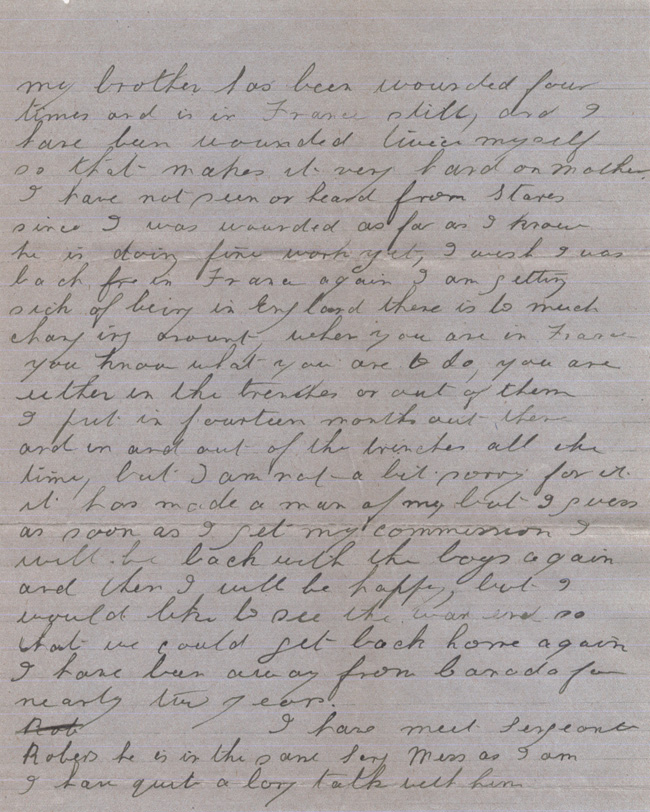 my brother has been wounded four
times and is in France still, and I
have been wounded twice myself
so that makes it very hard on mother.
I have not seen or heard from Stares
since I was wounded as far as I know
he is doing fine work yet, I wish I was
back in France again I am getting
sick of being in England there is to much
changing around, when you are in France
you know what you are to do, you are
either in the trenches or out of them
I put in fourteen months out there
and in and out of the trenches all the
time, but I am not a bit sorry for it.
it has made a man of my but I guess
as soon as I get my commission I
will be back with the boys again
and then I will be happy, but I
would like to see the war end so
that we could get back home again
I have been away from Canada for
nearly two years.
Rob I have meet Sergeant
Robers he is in the same Serg Mess as I am
I have quit a long talk with him